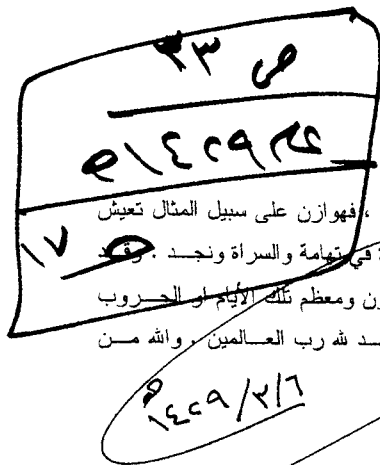 ص ٣٣
عام ١٤٢٩ هـ
، فهوازن على سبيل المثال تعيش
ص ١٧
ة في تهامة والسراة ونجد .
ون ومعظم تلك الأيام او الحروب
ـد لله رب العالمين . والله من
١٤٢٩/٣/٦ هـ